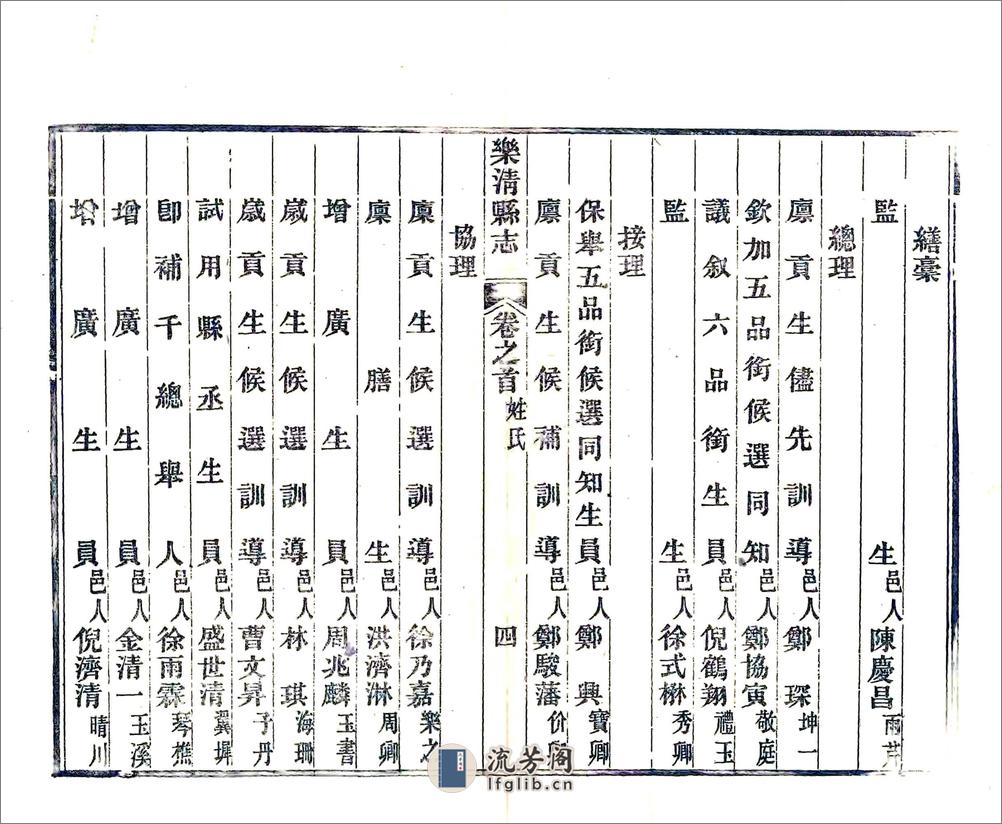 繕稾
監生邑人陳慶昌雨
總理
廪貢生儘先訓導邑人鄭琛坤一
欽加五品銜候選同知邑人鄭協寅敬庭
議叙六品銜生員邑人倪鶴翔禮玉
監生邑人徐式楙秀卿
接理
保舉五品銜候選同知生員邑人鄭興寶卿
廪貢生候補訓導邑人鄭駿藩价
樂淸縣志
卷之首
姓氏
四
協理
廪貢生候選訓導邑人徐乃嘉樂之
廪膳生邑人洪濟淋周卿
增廣生員邑人周兆麟玉書
歲貢生候選訓導邑人林琪海珊
歲貢生候選訓導邑人曹文昇予丹
試用縣丞生員邑人盛世清翼墀
卽補千總舉人邑人徐雨霖琴樵
增廣生員邑人金清一玉溪
增廣生員邑人倪濟清晴川
流芳阁
lfglib.cn